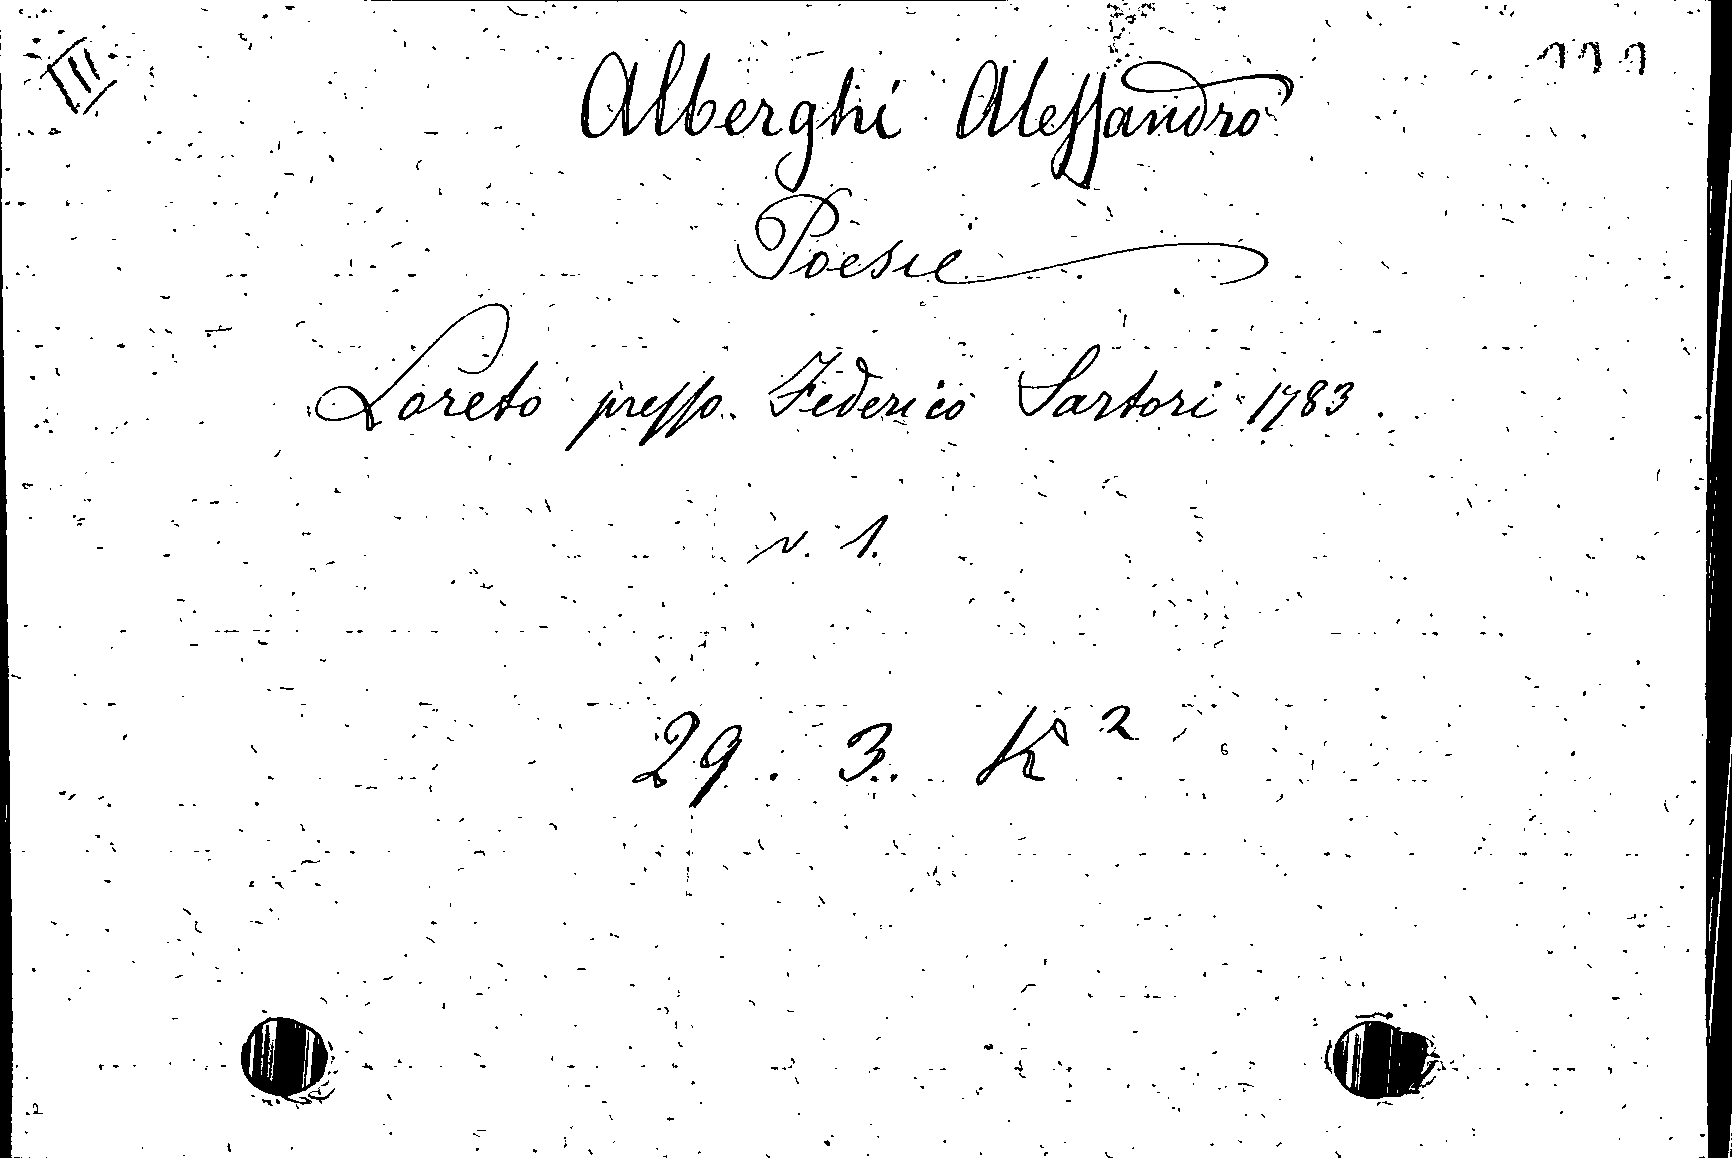 III
Alberghi Alessandro
Poesie
Loreto presso Federico Sartori 1783.
v. 1.
29. 3. K²